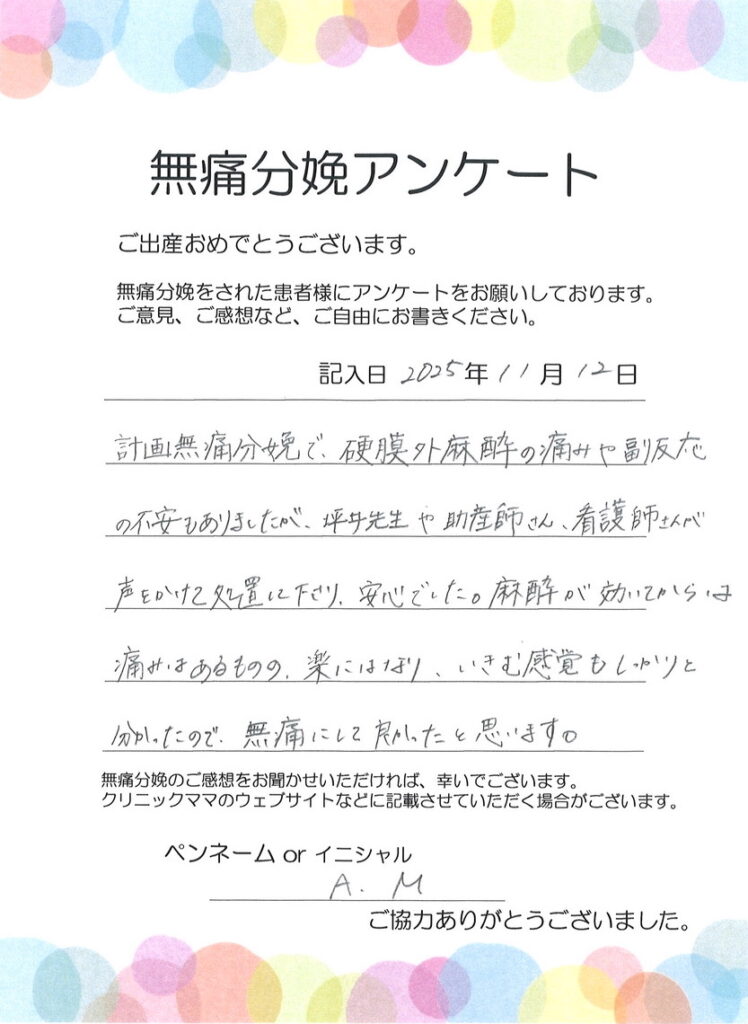 無痛分娩アンケート
ご出産おめでとうございます。
無痛分娩をされた患者様にアンケートをお願いしております。
ご意見、ご感想など、ご自由にお書きください。
記入日 2025年 11月 12日
計画無痛分娩で、硬膜外麻酔の痛みや副反応
の不安もありましたが、坪井先生や助産師さん、看護師さんが
声をかけて処置して下さり、安心でした。麻酔が効いてからは
痛みはあるものの、楽にはなり、いきむ感覚もしっかりと
分かったので、無痛にして良かったと思います。
無痛分娩のご感想をお聞かせいただければ、幸いでございます。
クリニックママのウェブサイトなどに記載させていただく場合がございます。
ペンネーム or イニシャル
A. M
ご協力ありがとうございました。